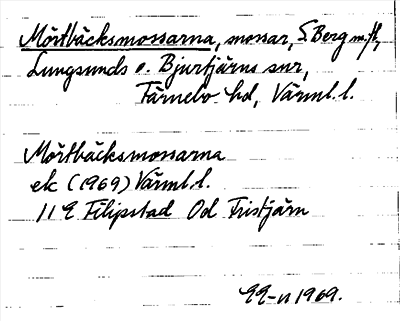 Mörtbäcksmossarna, mossar, S. Berg m.fl.,
Lungsunds o. Bjurtjärns snr,
Färnebo hd, Värml. l.
Mörtbäcksmossarna
ek (1969) Värml. l.
11 E Filipstad 0d Tristjärn
EE-n 1969.